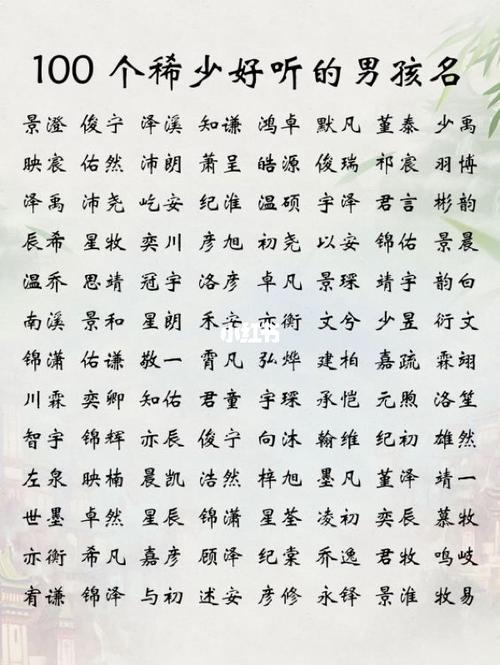 100个稀少好听的男孩名
景澄 俊宁 泽溪 知谦 鸿卓 默凡 堇泰 少禹
映宸 佑然 沛朗 萧呈 皓源 俊瑞 祁宸 羽博
泽禹 沛尧 屹安 纪淮 温硕 宇泽 君言 彬韵
辰希 星牧 奕川 彦旭 初尧 以安 锦佑 景晨
温乔 思靖 冠宇 洛彦 卓凡 景琛 靖宇 韵白
南溪 景和 星朗 禾安 亦衡 文兮 少昱 衍文
小红书
锦潇 佑谦 敬一 霄凡 弘烨 建柏 嘉疏 霖翊
川霖 奕卿 知佑 君童 宇琛 承恺 元煦 洛笙
智宇 锦辉 亦辰 俊宁 向冰 翰维 纪初 雄然
左泉 映楠 晨凯 浩然 梓旭 墨凡 堇泽 靖一
世墨 卓然 星辰 锦潇 星荃 凌初 奕辰 慕牧
亦衡 希凡 嘉彦 顾泽 纪棠 乔逸 君牧 鸣岐
宥谦 锦泽 与初 述安 彦修 永铎 景淮 牧易